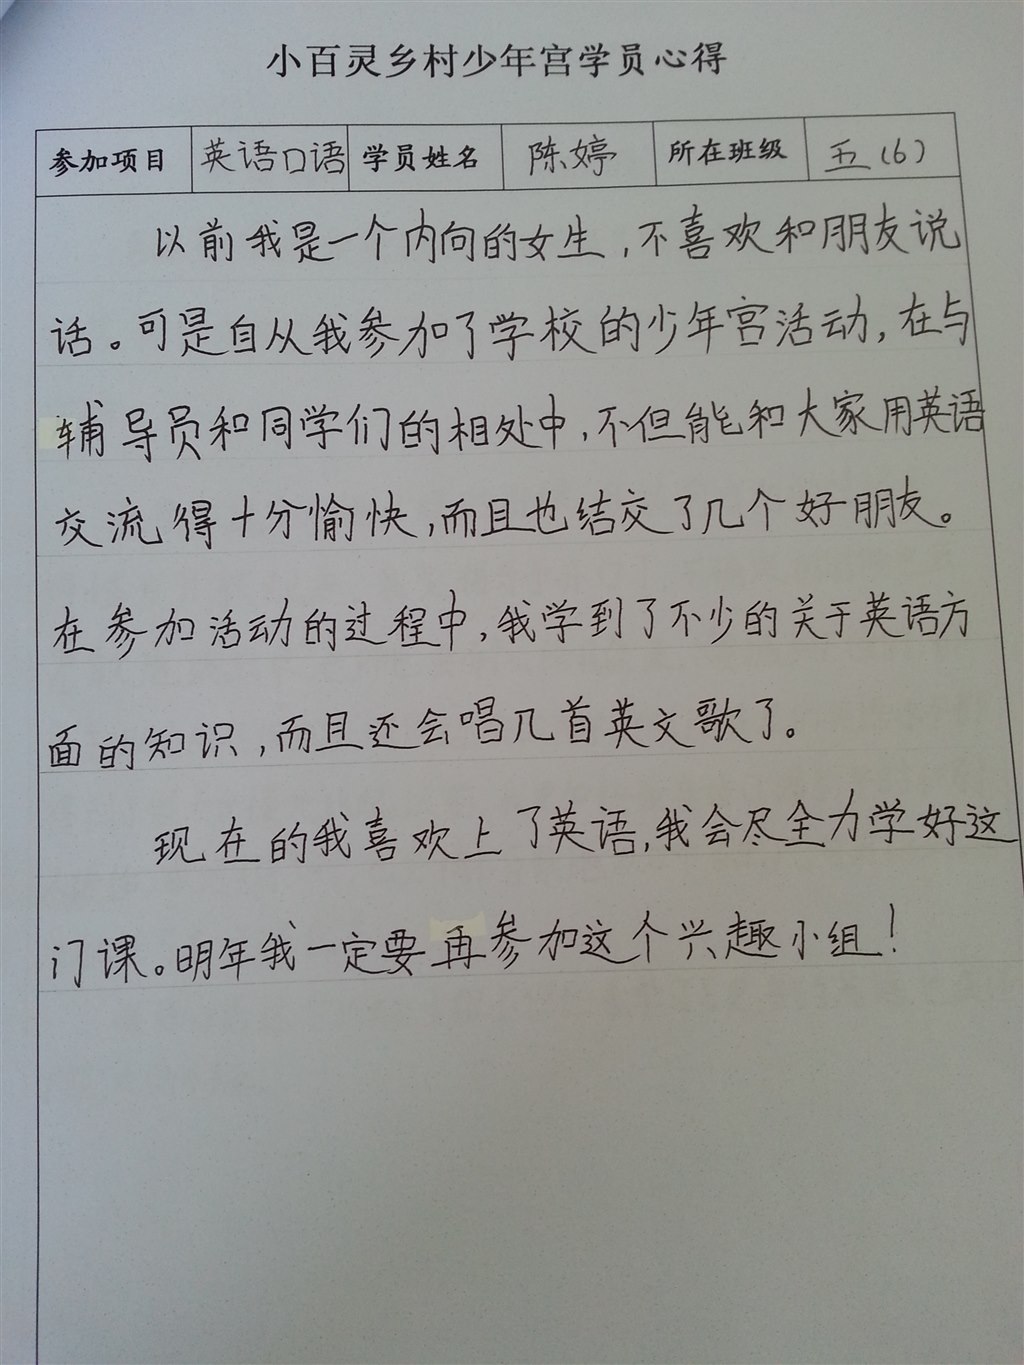 小百灵乡村少年宫学员心得
参加项目 英语口语 学员姓名 陈婷 所在班级 五(6)
以前我是一个内向的女生,不喜欢和朋友说
话。可是自从我参加了学校的少年宫活动,在与
辅导员和同学们的相处中,不但能和大家用英语
交流得十分愉快,而且也结交了几个好朋友。
在参加活动的过程中,我学到了不少的关于英语方
面的知识,而且还会唱几首英文歌了。
现在的我喜欢上了英语,我会尽全力学好这
门课。明年我一定要再参加这个兴趣小组!